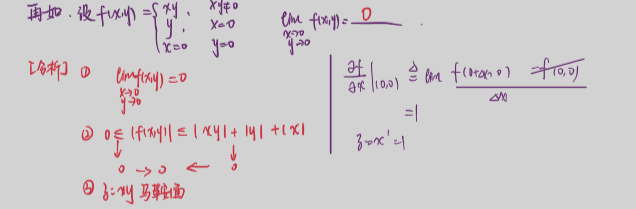 再如. 设 f(x,y) = { xy, xy≠0
y, x=0
x=0 y=0
lim f(x,y) = 0
x→0
y→0
[分析] ① lim f(x,y) = 0
x→0
y→0
② 0 ≤ |f(x,y)| ≤ |xy| + |y| + |x|
↓ ↓
0 → 0 ← 0
③ z=xy 马鞍面
∂f/∂x|(0,0) ≜ lim f(0+Δx, 0) - f(0,0) / Δx
=1
z=x'=1